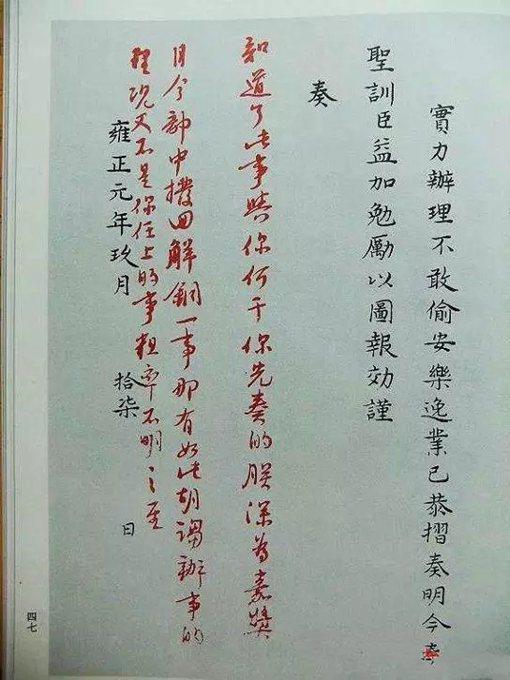 實力辦理不敢偷安樂逸業已恭摺奏明今
聖訓臣益加勉勵以圖報効謹
奏
知道了此事與你何干你先奏的朕深為嘉獎
目今部中撥回解銅一事那有如此胡謅辦事的
理況又不是你任上的事粗率不明之至
雍正元年玖月拾柒日
四七